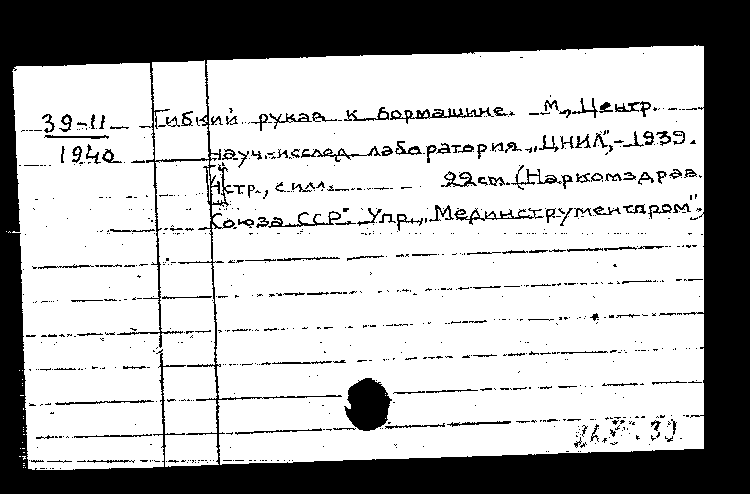 39-11 Гибкий рукав к бормашине. М., Центр.
1940 науч.-исслед. лаборатория „ЦНИЛ", - 1939.
[4]стр., с илл. 22 cm. (Наркомздрав
Союза ССР". Упр. „Мединструментпром").
39